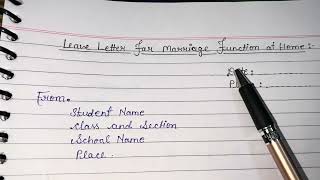 Leave Letter for Marriage Function at Home:-
Date:
P
From,
Student Name
Class and Section
School Name
Place.